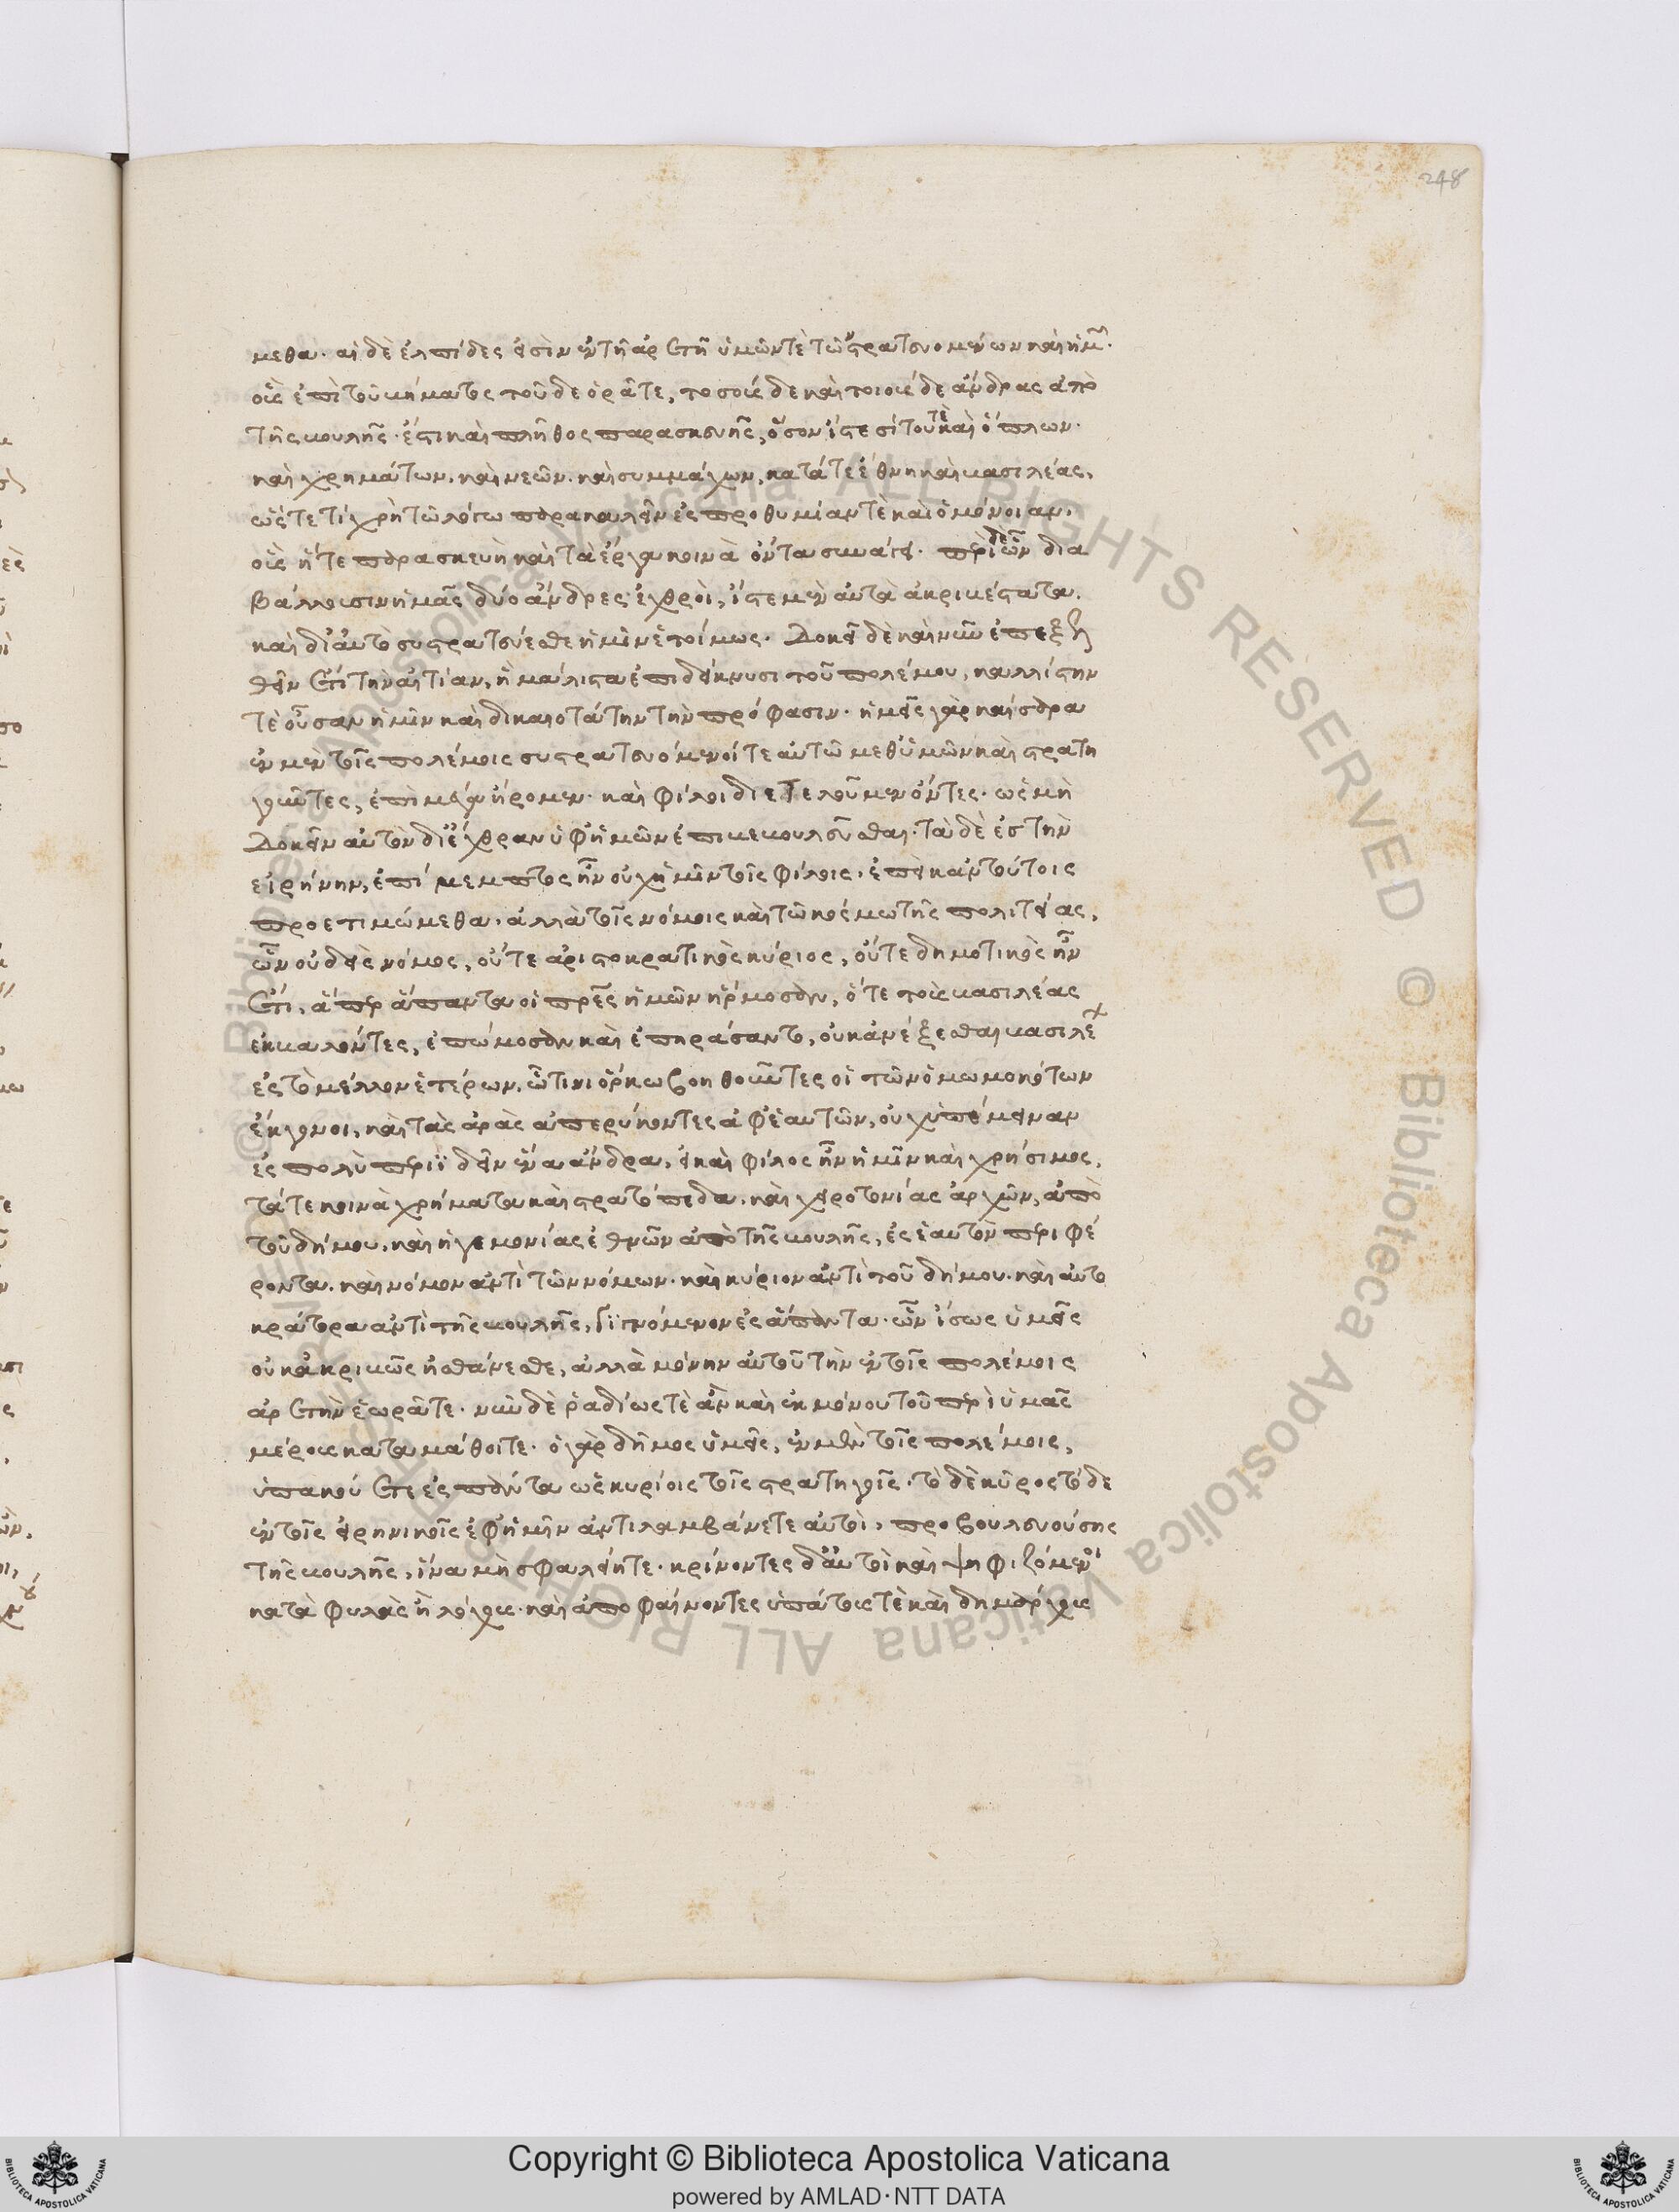 248
μεθα· αἱ δὲ ἐλπίδες εἰσὶν ἐν τῇ ἀρετῇ ὑμῶν τε τῶν στρατευομένων καὶ ἡμῶν·
οὓς ἐπὶ τοῦ βήματος τοῦδε ὁρᾶτε, τοσούσδε καὶ τοιούσδε ἄνδρας ἀπὸ
τῆς βουλῆς· ἔστι καὶ πλῆθος παρασκευῆς, ὅσον ἴστε σίτου τὲ καὶ ὅπλων·
καὶ χρημάτων· καὶ νεῶν· καὶ συμμάχων, κατά τε ἔθνη καὶ βασιλέας,
ὥστε τί χρὴ τῷ λόγῳ παρακαλεῖν ἐς προθυμίαν τὲ καὶ ὁμόνοιαν·
οὓς ἥ τε παρασκευὴ καὶ τὰ ἔργα κοινὰ ὄντα συνάγει· περὶ δὲ ὧν δια
βάλλουσιν ἡμᾶς δύο ἄνδρες ἐχθροὶ, ἴστε μὲν αὐτὰ ἀκριβέστατα.
καὶ δι' αὐτὸ συστρατεύεσθε ἡμῖν ἑτοίμως· Δοκεῖ δὲ καὶ νῦν ἐπεξελ
θεῖν ἔτι τὴν αἰτίαν, ἣ μάλιστα ἐπιδείκνυσι τοῦ πολέμου, καλλίστην
τὲ οὖσαν ἡμῖν καὶ δικαιοτάτην τὴν πρόφασιν· ἡμεῖς γὰρ καίσαρα
ἐν μὲν τοῖς πολέμοις συστρατευόμενοί τε αὐτῷ μεθ' ὑμῶν καὶ στρατη
γοῦντες, ἐπὶ μέγα ᾔρομεν· καὶ φίλοι διετελοῦμεν ὄντες· ὡς μὴ
Δοκεῖν αὐτὸν δι' ἔχθραν ὑφ' ἡμῶν ἐπιβεβουλεῦσθαι· τὰ δὲ ἐς τὴν
εἰρήνην, ἐπίμεμπτος ἦν οὐχ ἡμῖν τοῖς φίλοις· ἐπεὶ κἀν τούτοις
προετιμώμεθα· ἀλλὰ τοῖς νόμοις καὶ τῷ κόσμῳ τῆς πολιτείας,
ὧν οὐδεὶς νόμος, οὔτε ἀριστοκρατικὸς κύριος, οὔτε δημοτικὸς ἦν
ἔτι, ἅπερ ἅπαντα οἱ πατέρες ἡμῶν ἥρμοσαν, ὅτε τοὺς βασιλέας
ἐκβαλόντες, ἐπώμοσαν καὶ ἐπηράσαντο, οὐκ ἀνέξεσθαι βασιλέων
ἐς τὸ μέλλον ἑτέρων· ᾧ τινι ὅρκῳ βοηθοῦντες οἱ τῶν ὀμωμοκότων
ἔκγονοι, καὶ τὰς ἀρὰς ἀπερύκοντες ἀφ' ἑαυτῶν, οὐχ ὑπεμείναμεν
ἐς πολὺ περιϊδεῖν ἕνα ἄνδρα, εἰ καὶ φίλος ἦν ἡμῖν καὶ χρήσιμος,
τά τε κοινὰ χρήματα καὶ στρατόπεδα· καὶ χειροτονίας ἀρχῶν, ἀπὸ
τοῦ δήμου· καὶ ἡγεμονίας ἐθνῶν ἀπὸ τῆς βουλῆς, ἐς ἑαυτὸν περιφέ
ροντα· καὶ νόμον ἀντὶ τῶν νόμων· καὶ κύριον ἀντὶ τοῦ δήμου· καὶ αὐτο
κράτορα ἀντὶ τῆς βουλῆς, γιγνόμενον ἐς ἅπαντα· ὧν ἴσως ὑμεῖς
οὐκ ἀκριβῶς ᾐσθάνεσθε, ἀλλὰ μόνην αὐτοῦ τὴν ἐν τοῖς πολέμοις
ἀρετὴν ἑωρᾶτε· νῦν δὲ ῥᾳδίως τὲ ἂν καὶ ἐκ μόνου τοῦ περὶ ὑμᾶς
μέρους καταμάθοιτε· ὁ γὰρ δῆμος ὑμεῖς, ἐν μὲν τοῖς πολέμοις,
ὑπακούετε ἐς πάντα ὡς κυρίοις τοῖς στρατηγοῖς· τὸ δὲ κῦρος τόδε
ἐν τοῖς εἰρηνικοῖς ἐφ' ἡμῖν ἀντιλαμβάνετε αὐτοὶ, προβουλευούσης
τῆς βουλῆς, ἵνα μὴ σφαλείητε· κρίνοντες δ' αὐτοὶ καὶ ψηφιζόμενοι
κατὰ φυλὰς ἢ λόχους· καὶ ἀποφαίνοντες ὑπάτους τὲ καὶ δημάρχους
Copyright © Biblioteca Apostolica Vaticana
powered by AMLAD·NTT DATA